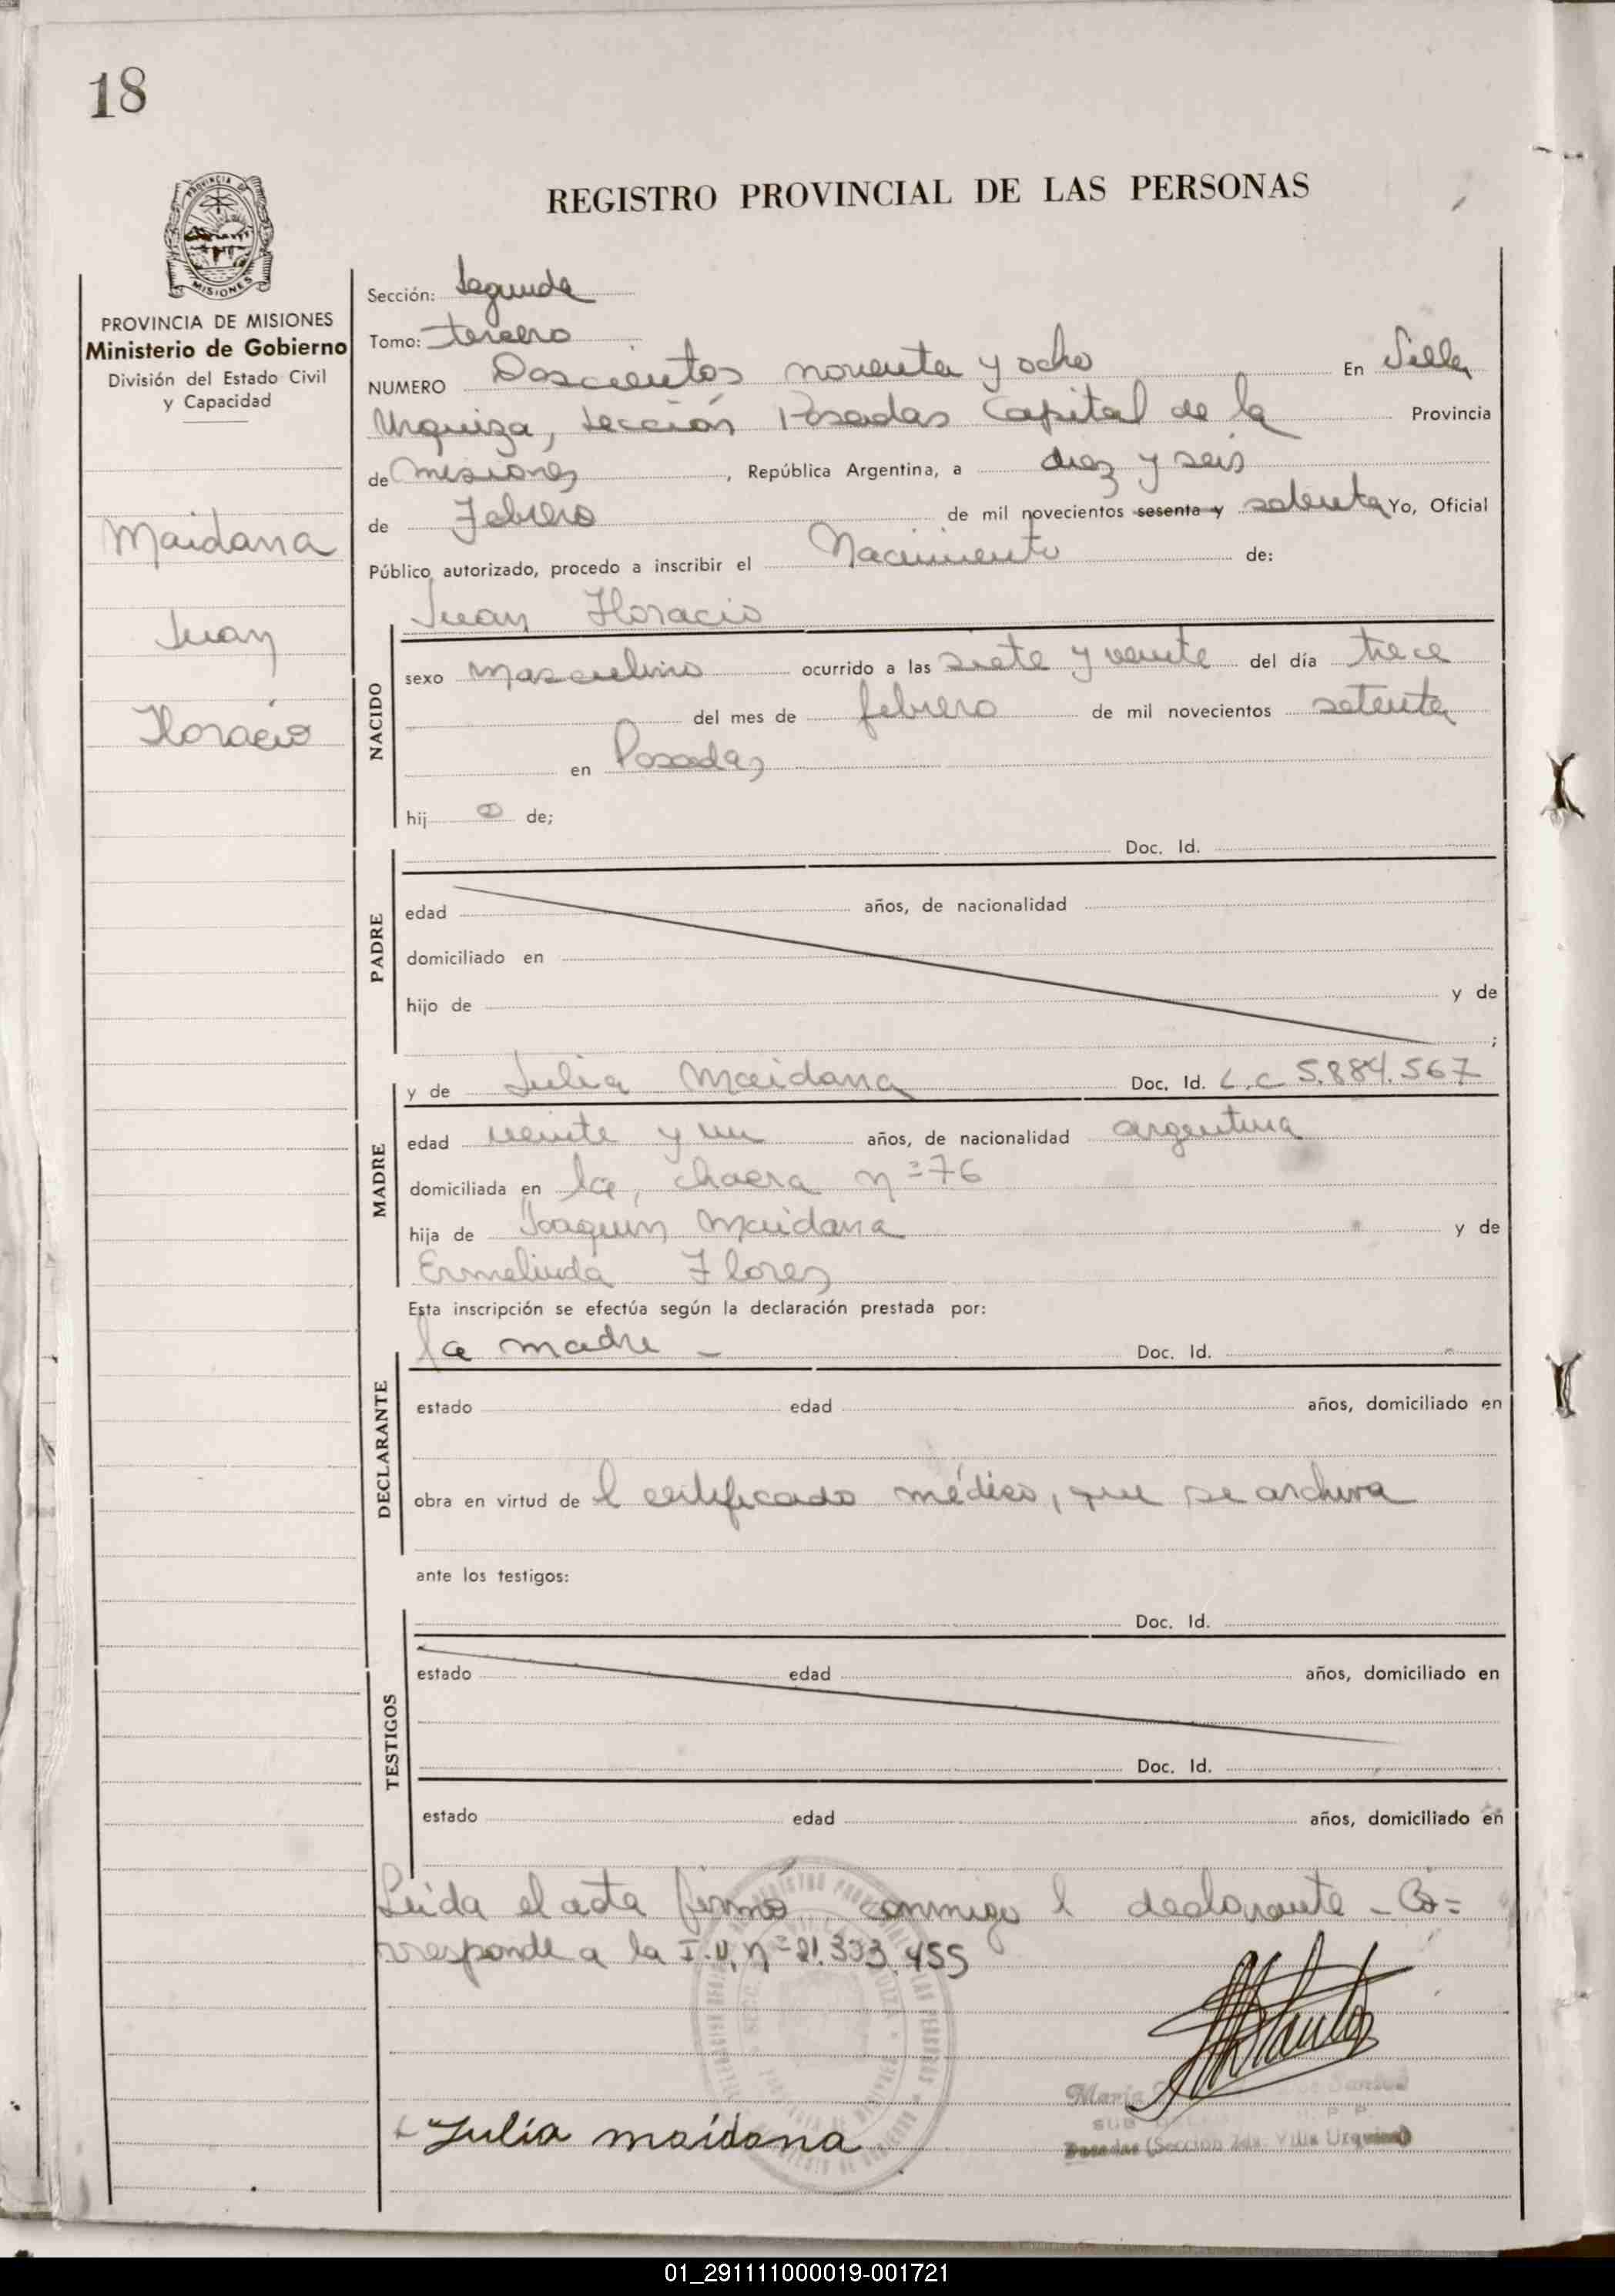 18
REGISTRO PROVINCIAL DE LAS PERSONAS
PROVINCIA DE MISIONES
Ministerio de Gobierno
División del Estado Civil
y Capacidad
Maidana
Juan
Horacio
Sección: Segunda
Tomo: tercero
NUMERO Doscientos noventa y ocho En Villa
Urquiza, Sección Posadas Capital de la Provincia
de Misiones, República Argentina, a diez y seis
de Febrero de mil novecientos sesenta y setenta Yo, Oficial
Público autorizado, procedo a inscribir el Nacimiento de:
Juan Horacio
NACIDO
sexo masculino ocurrido a las siete y veinte del día trece
del mes de febrero de mil novecientos setenta
en Posadas
hij o de;
Doc. Id.
PADRE
edad años, de nacionalidad
domiciliado en
hijo de y de
;
y de Julia Maidana Doc. Id. L.C 5.884.567
MADRE
edad veinte y un años, de nacionalidad argentina
domiciliada en la, chacra nº 76
hija de Joaquín Maidana y de
Ermelinda Flores
Esta inscripción se efectúa según la declaración prestada por:
la madre - Doc. Id.
DECLARANTE
estado edad años, domiciliado en
obra en virtud de l certificado médico, que se archiva
ante los testigos:
Doc. Id.
TESTIGOS
estado edad años, domiciliado en
Doc. Id.
estado edad años, domiciliado en
Leída el acta firmó conmigo l declarante - Co=
rresponde a la I.U. nº 21.333.455
María Santos
SUB
Posadas (Sección 2da. Villa Urquiza)
Julia maidana
01_291111000019-001721